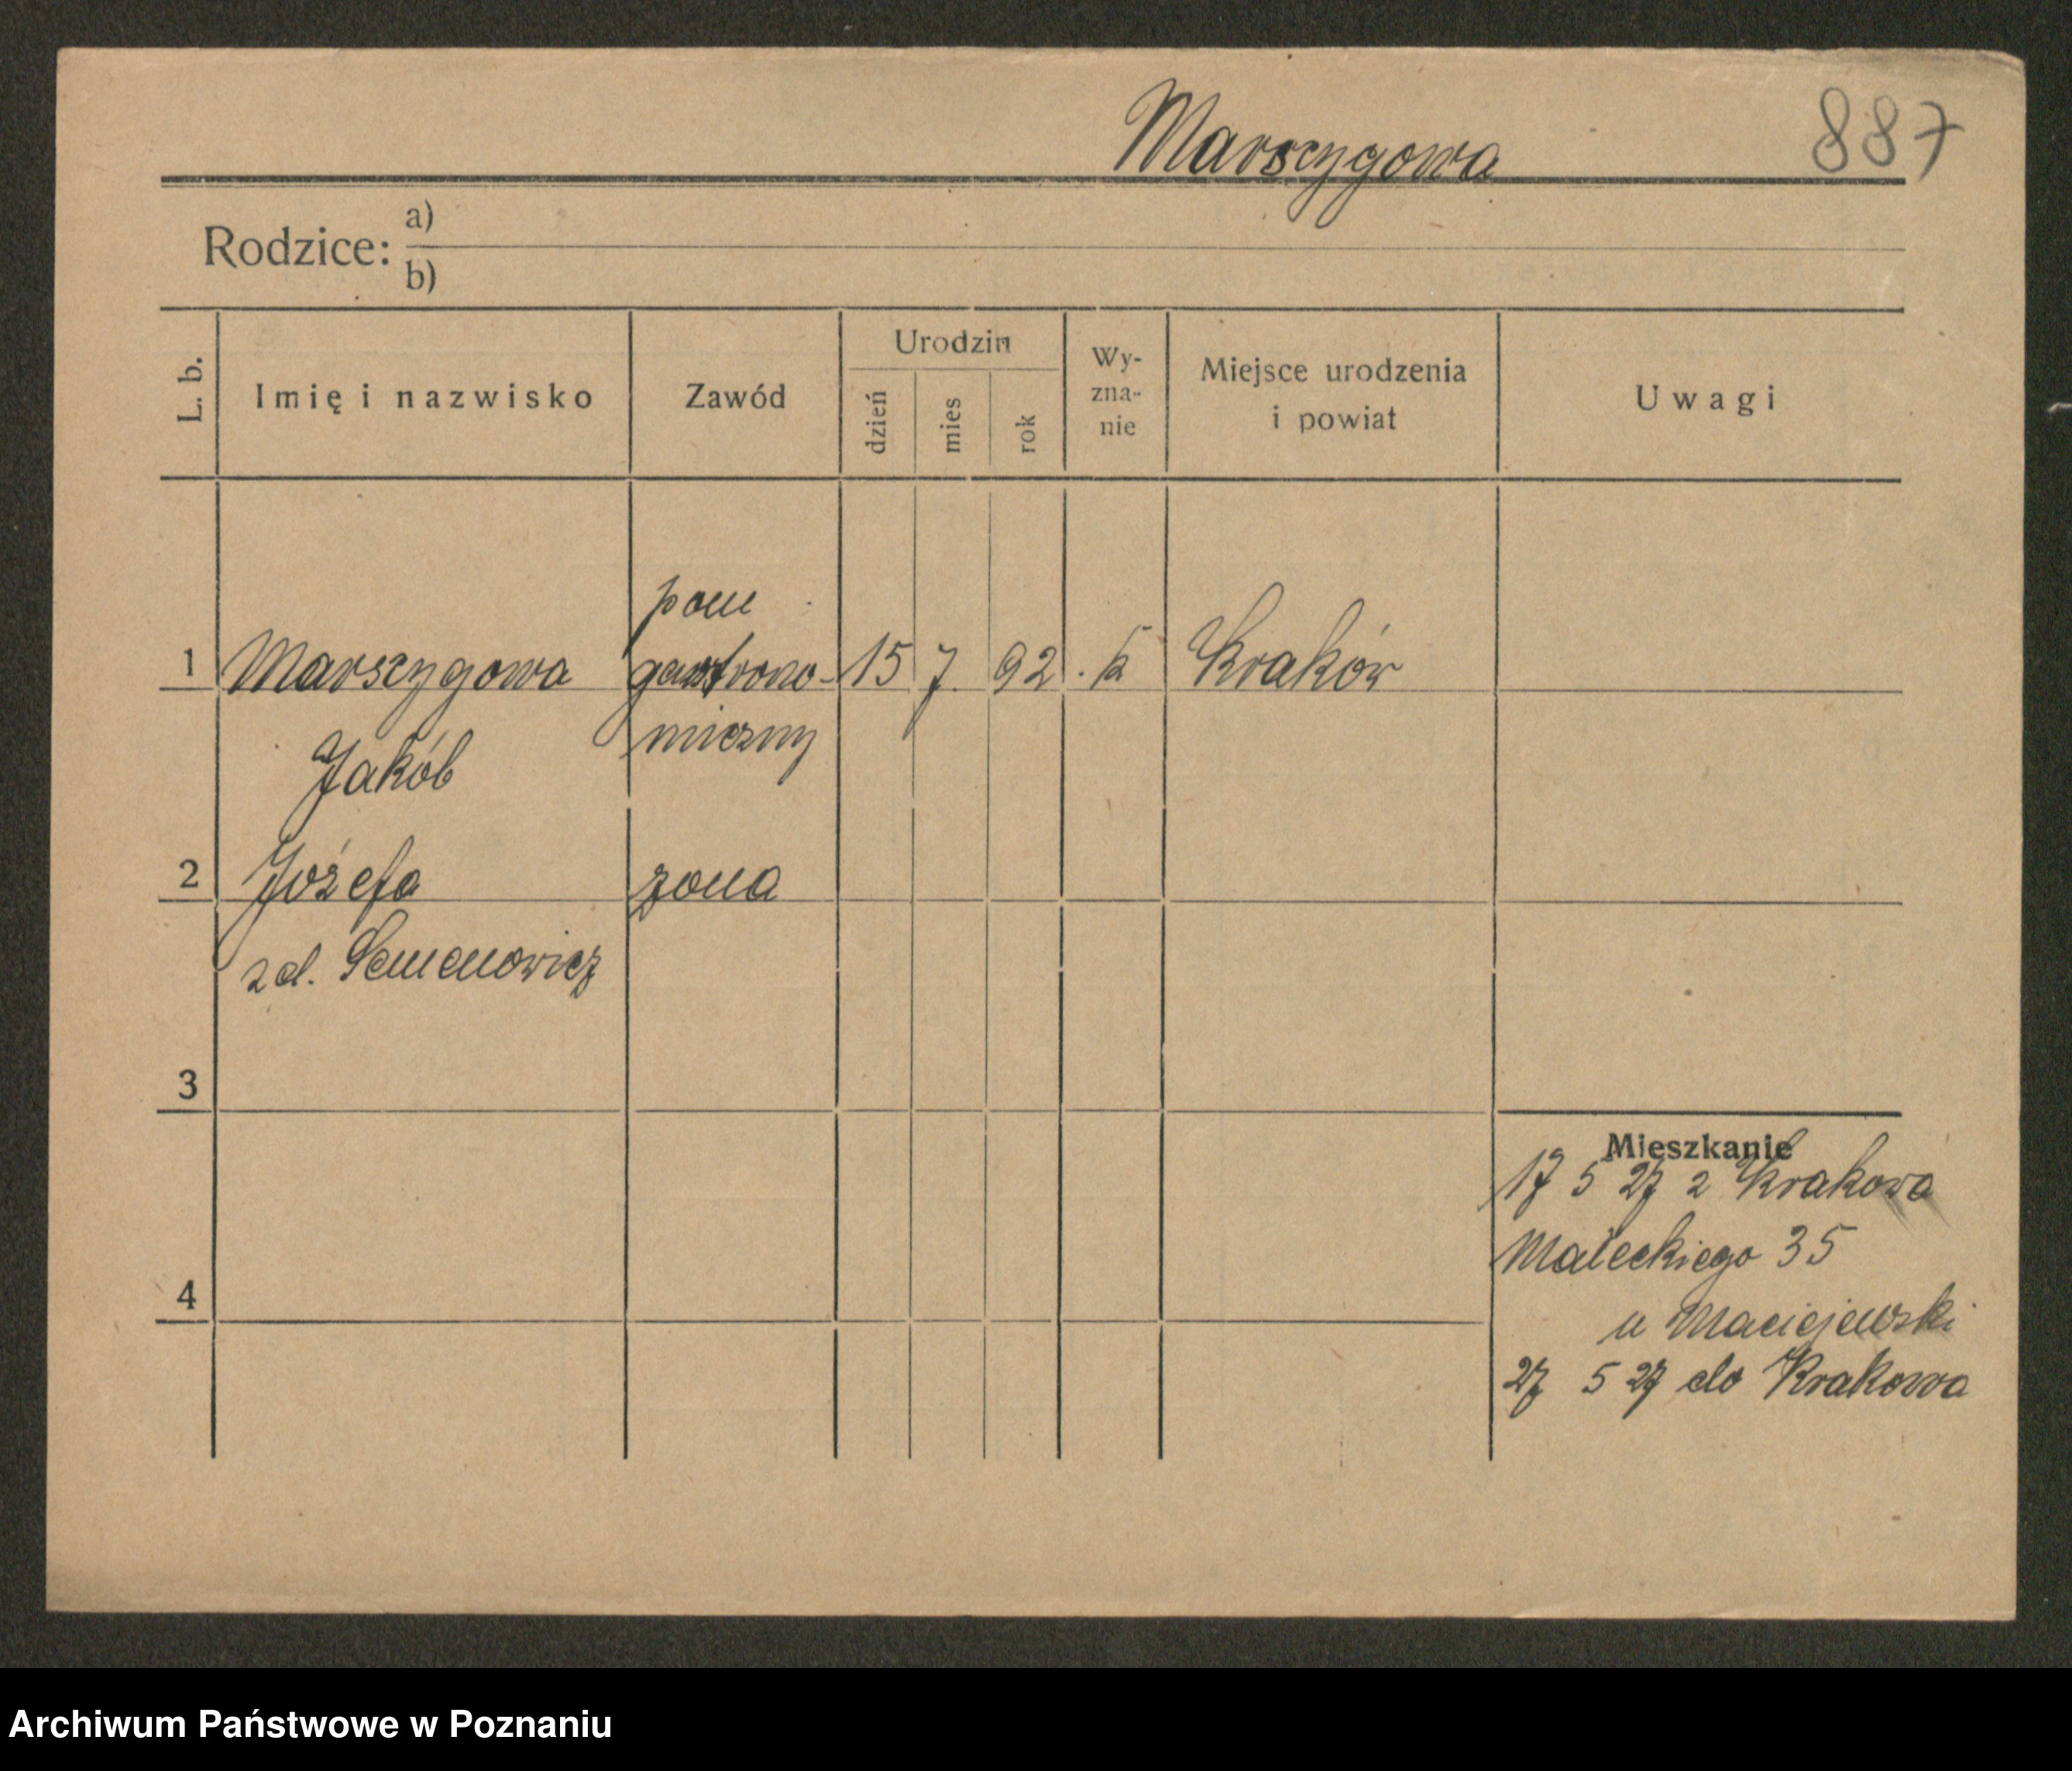 Marszygowa 887
Rodzice: a)
b)
L. b. Imię i nazwisko Zawód Urodzin dzień mies rok Wy-zna-nie Miejsce urodzenia i powiat Uwagi
pom
1 Marszygowa gastrono- 15 7 92 k Kraków
miczny
Jakób
2 Józefa żona
z d. Semenowicz
3
Mieszkanie
17 5 27 z Krakowa
Małeckiego 35
u Maciejewski
4
27 5 27 do Krakowa
Archiwum Państwowe w Poznaniu